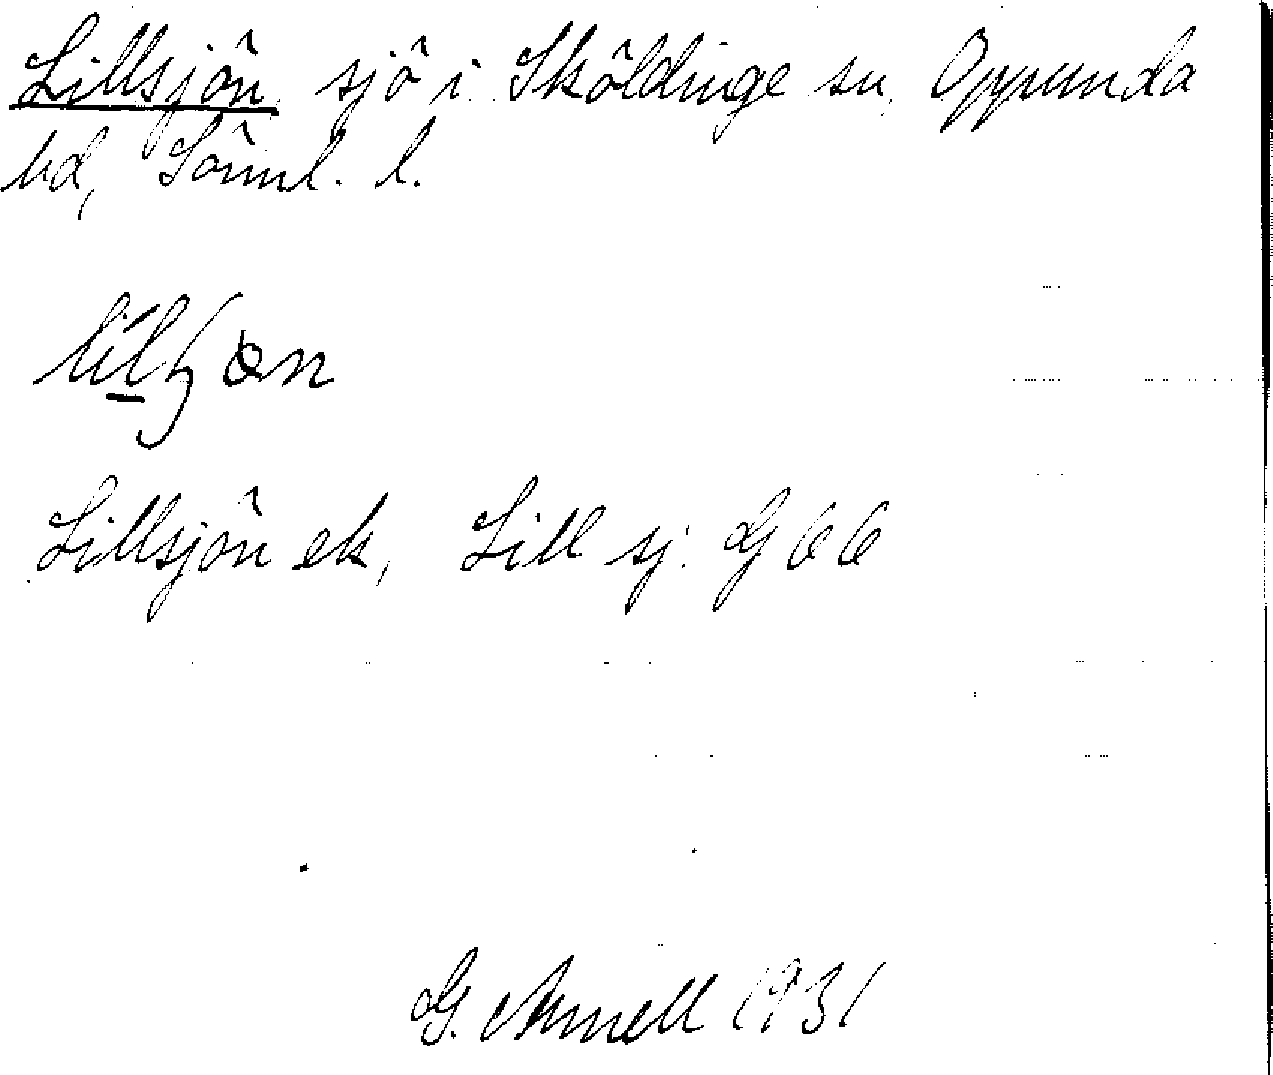 Lillsjön sjö i Sköldinge sn, Oppunda
hd, Söml. l.
Lillsjön ek, Lill sj. Gg 66
G. Amnell 1931